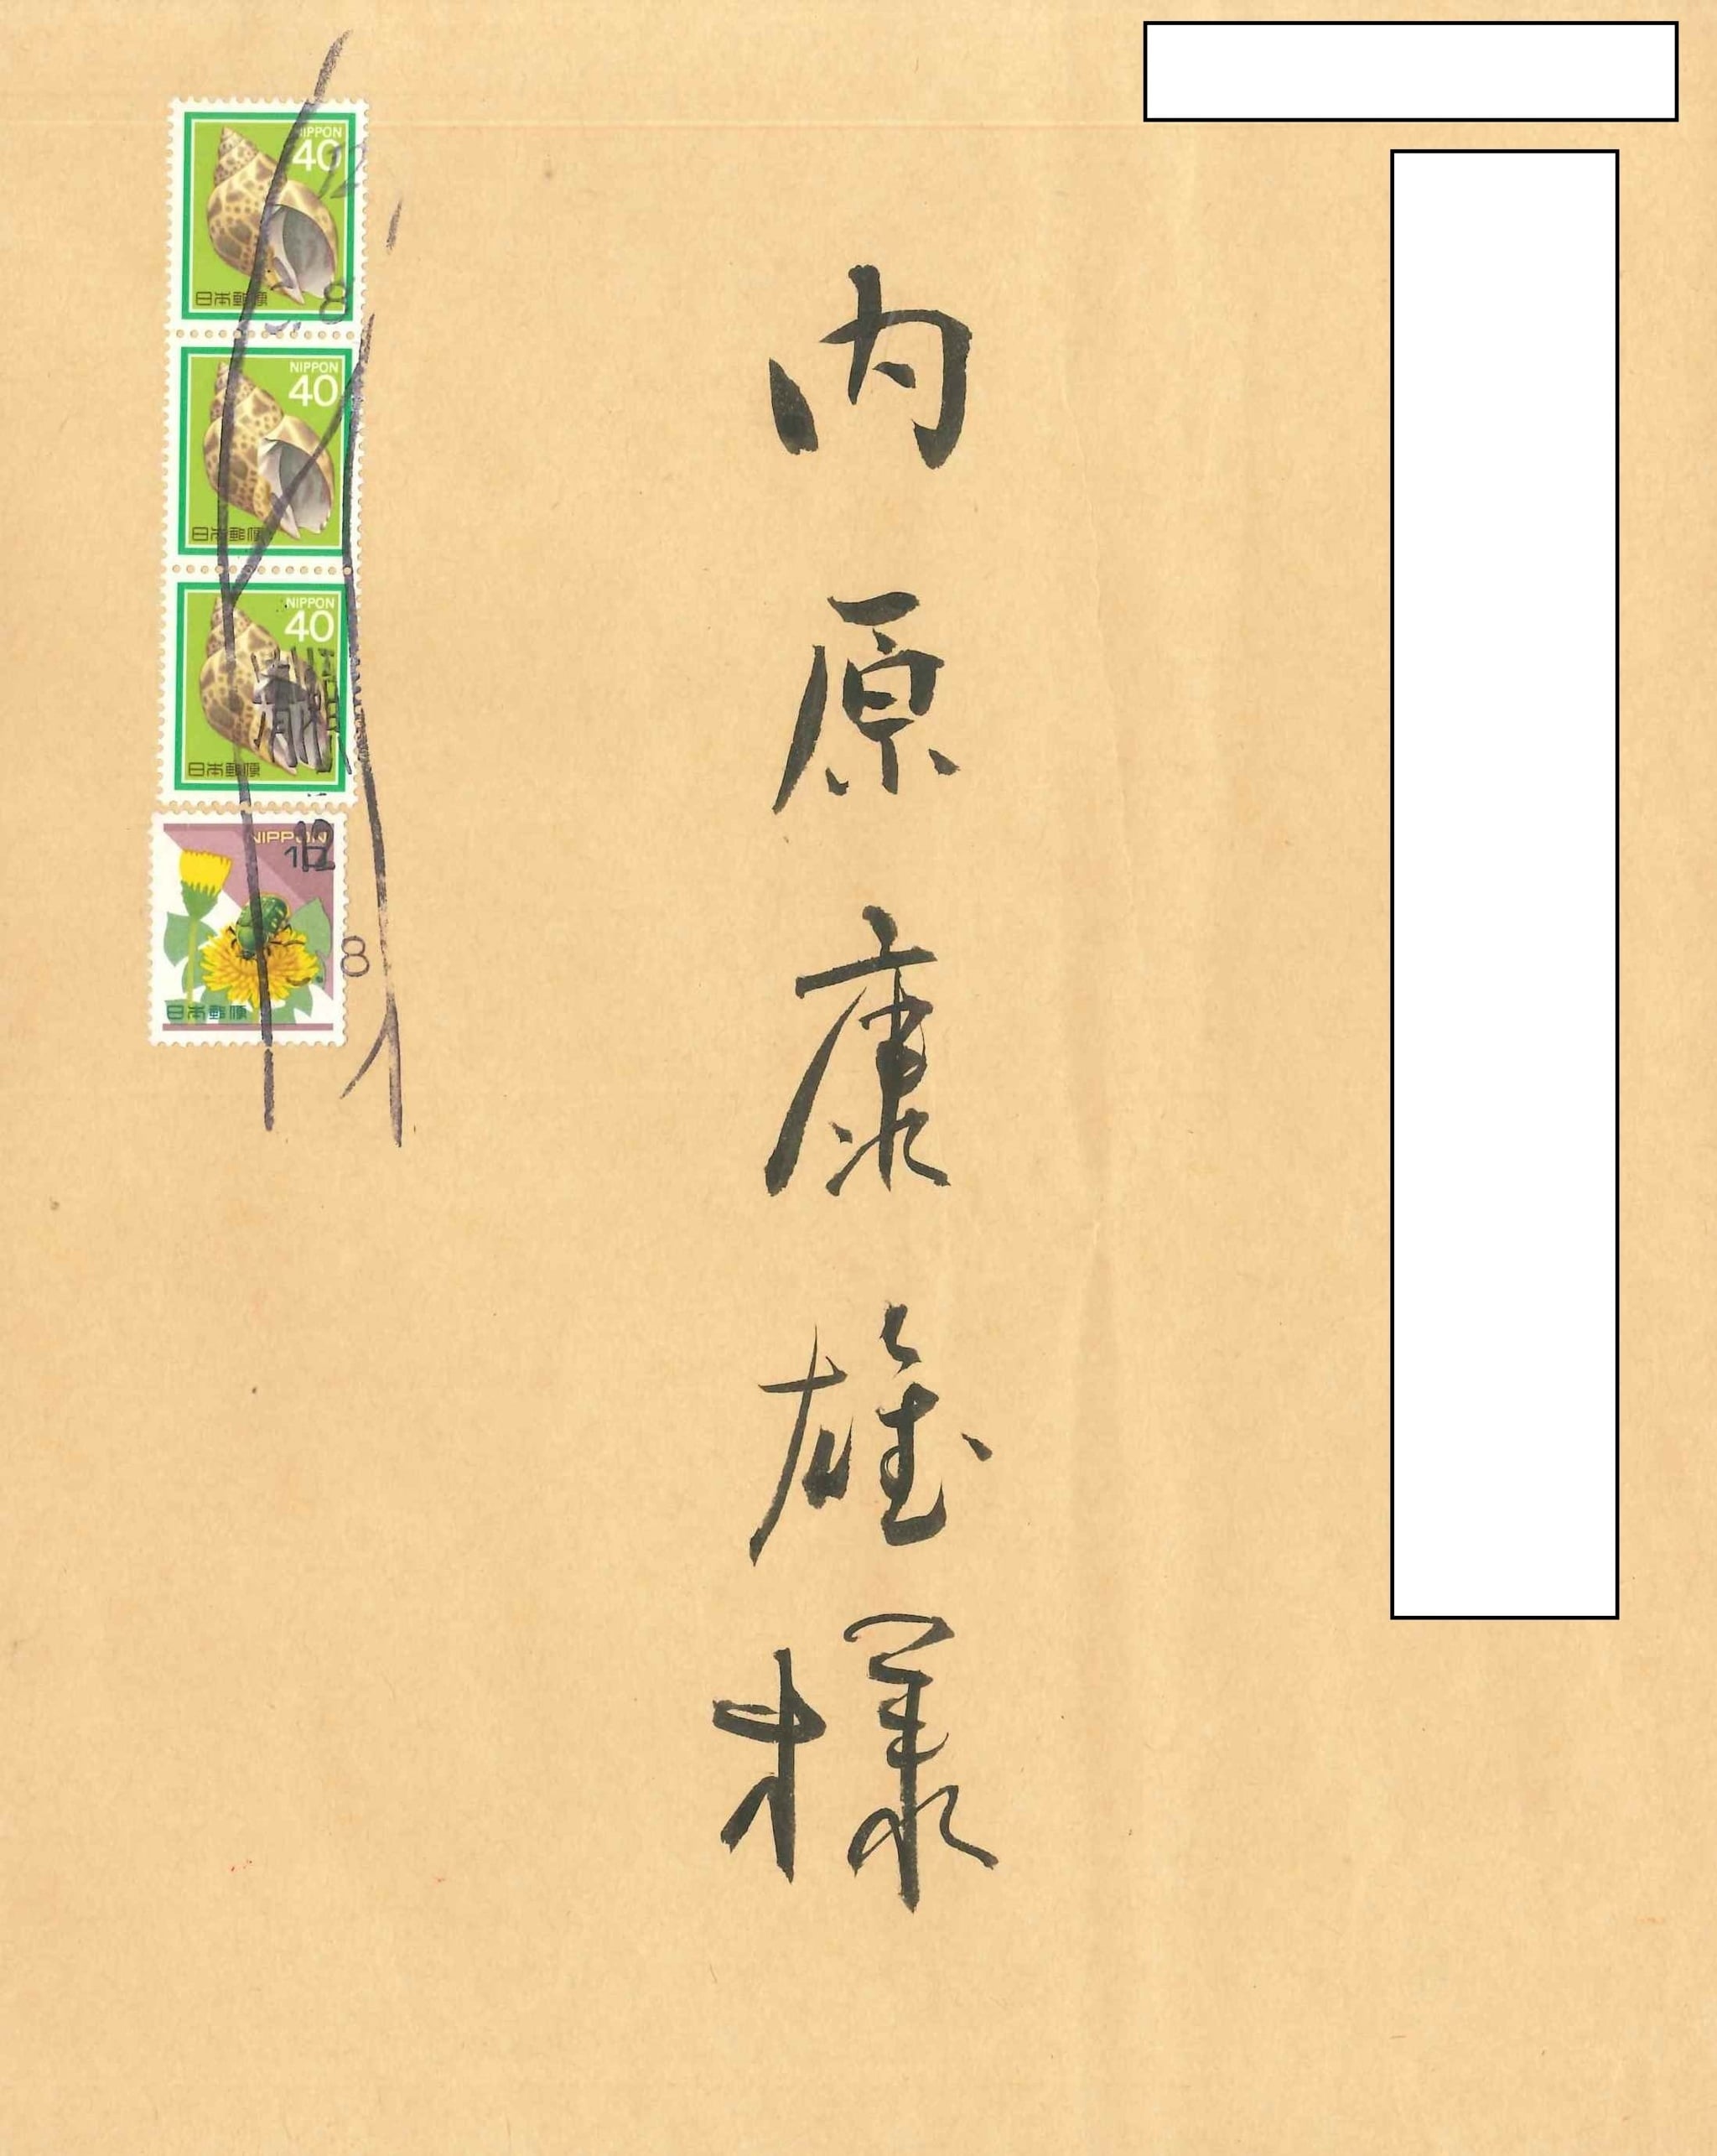 内原康雄様
NIPPON
40
日本郵便
NIPPON
40
日本郵便
NIPPON
40
日本郵便
NIPPON
日本郵便
8